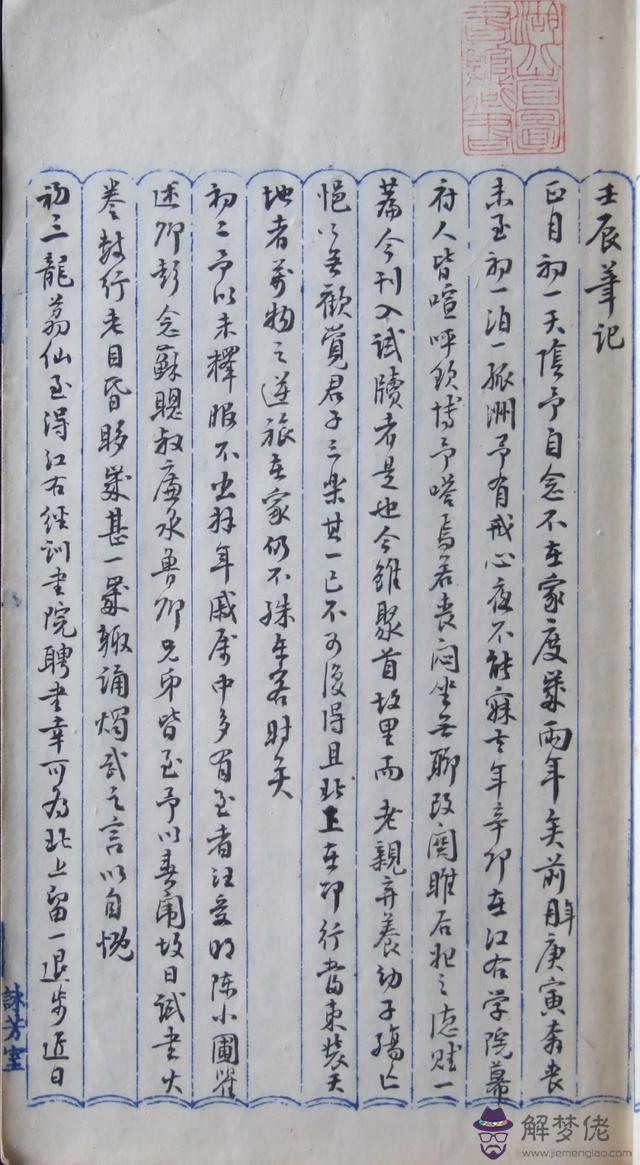 壬辰筆记
正月初一天陰予自念不在家度歲兩年矣前年庚寅奔丧
未至初一泊一孤洲予有戒心夜不能寐去年辛卯在江右学院幕
府人皆喧呼飲博予嗒焉若喪闷坐无聊改關雎后妃之德赋一
篇今刊入试牍者是也今雖聚首故里而老親弃養幼子殤亡
悒以无歡覺君子三樂其一已不可復得且北上在即行當束裝天
地者萬物之逆旅在家仍不殊在客时矣
初二予以未釋服不出拜年戚属中多有至者汪受明陈小圃崔
述卿彭念蘇聰叔廉承魯卿兄弟皆至予以春闱故日試書大
卷数行老目昏眵歲甚一歲辄誦燭武之言以自慨
初三龍荔仙至得江右經訓書院聘書幸可为北上留一退步近日
詠芳室
解梦佬
www.jiemenglao.com